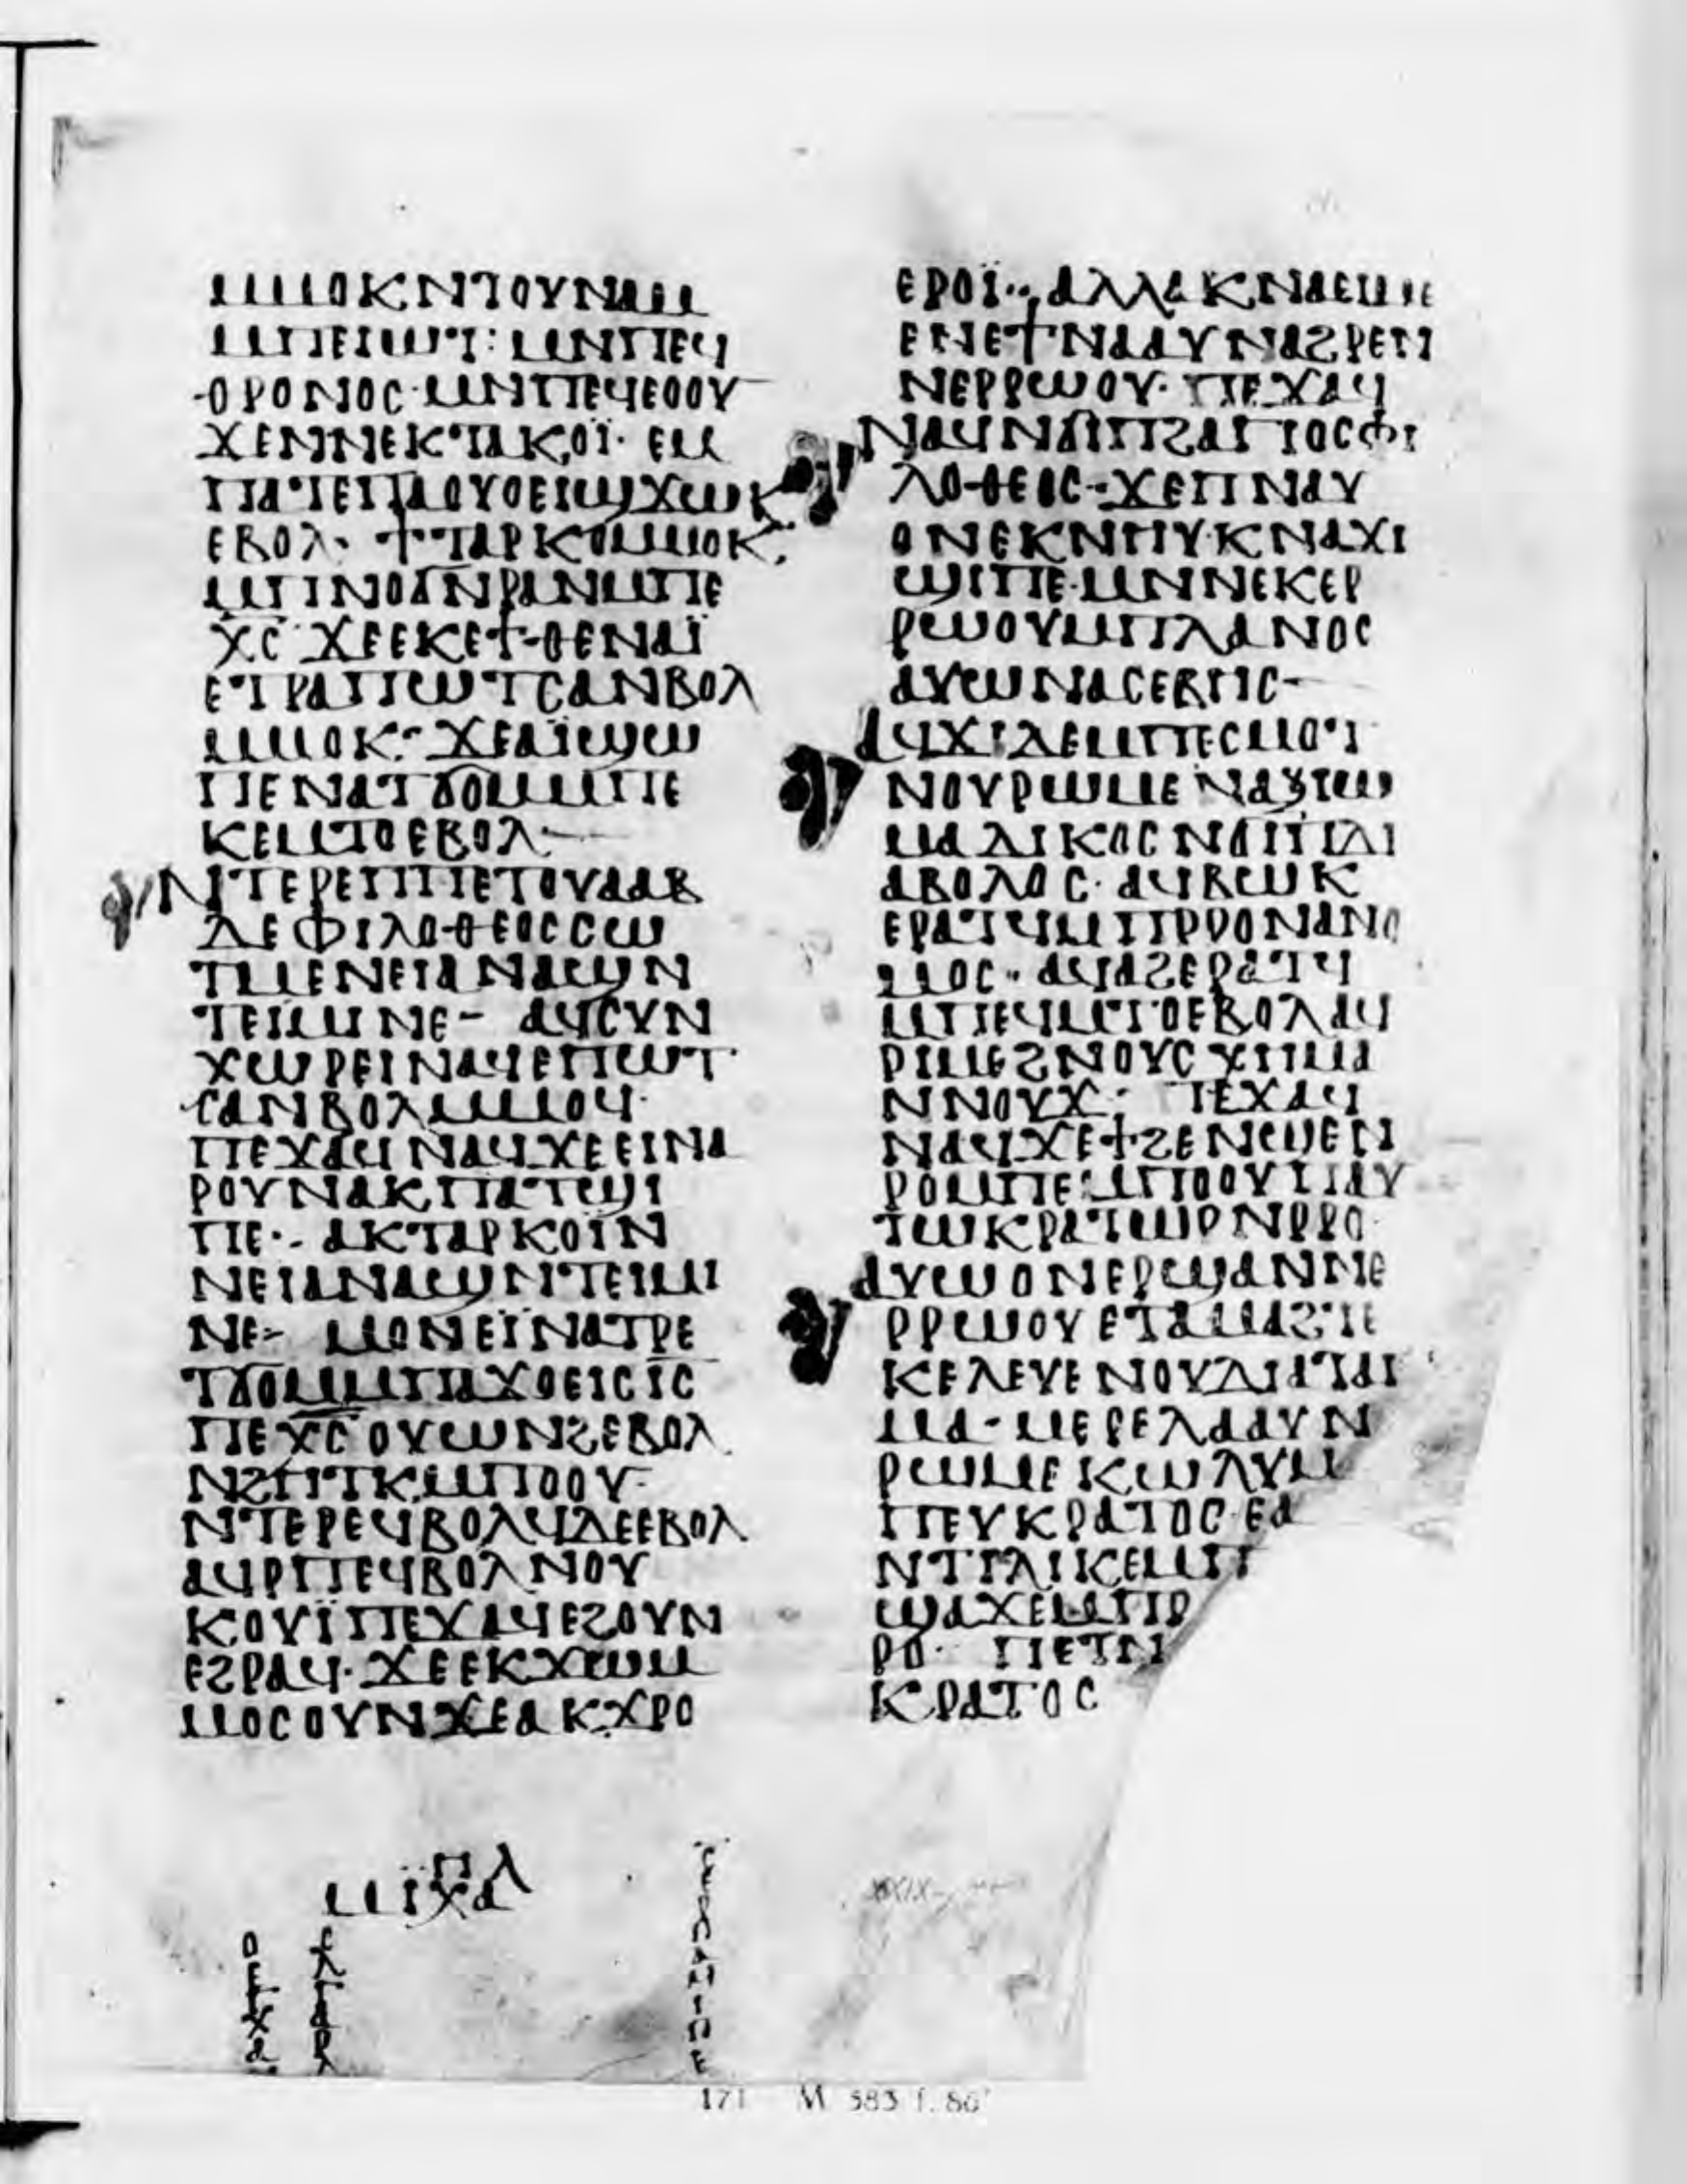 ⲙⲙⲟⲕⲛⲧⲟⲩⲛⲁⲙ
ⲙⲡⲉⲓⲱⲧ: ⲙⲛⲡⲉϥ
ⲑⲣⲟⲛⲟⲥ·ⲙⲛⲡⲉϥⲉⲟⲟⲩ
ϫⲉⲛⲛⲉⲕⲧⲁⲕⲟⲓ̈· ⲉⲙ
ⲡⲁⲧⲉⲡⲁⲟⲩⲟⲉⲓϣϫⲱⲕ
ⲉⲃⲟⲗ· ϯⲧⲁⲣⲕⲟⲙⲙⲟⲕ·
ⲙⲡⲛⲟϭⲛⲣⲁⲛⲙⲡⲉ
ⲭⲥ ϫⲉⲉⲕⲉϯⲑⲉⲛⲁⲓ̈
ⲉⲧⲣⲁⲡⲱⲧⲥⲁⲛⲃⲟⲗ
ⲙⲙⲟⲕ·- ϫⲉⲁⲓ̈ϣⲱ
ⲡⲉⲛⲁⲧϭⲟⲙⲙⲡⲉ
ⲕⲉⲙⲧⲟⲉⲃⲟⲗ·-
ⲛⲧⲉⲣⲉⲡⲡⲉⲧⲟⲩⲁⲁⲃ
ⲇⲉ ⲫⲓⲗⲟⲑⲉⲟⲥⲥⲱ
ⲧⲙⲉⲛⲉⲓⲁⲛⲁϣⲛ
ⲧⲉⲓⲙⲓⲛⲉ- ⲁϥⲥⲩⲛ
ⲭⲱⲣⲉⲓⲛⲁϥⲉⲡⲱⲧ·
ⲥⲁⲛⲃⲟⲗⲙⲙⲟϥ·
ⲡⲉϫⲁϥⲛⲁϥϫⲉⲉⲓⲛⲁ
ⲣⲟⲩⲛⲁⲕⲡⲁⲧϣⲓ
ⲡⲉ·- ⲁⲕⲧⲁⲣⲕⲟⲓ̈ⲛ
ⲛⲉⲓⲁⲛⲁϣⲛⲧⲉⲓⲙⲓ
ⲛⲉ- ⲙⲟⲛⲉⲓ̈ⲛⲁⲧⲣⲉ
ⲧϭⲟⲙⲙⲡⲁϫⲟⲉⲓⲥ ⲓⲥ
ⲡⲉⲭⲥ ⲟⲩⲱⲛϩⲉⲃⲟⲗ
ⲛϩⲏⲧⲕⲙⲡⲟⲟⲩ-
ⲛⲧⲉⲣⲉϥⲃⲟⲗϥⲇⲉⲉⲃⲟⲗ
ⲁϥⲣⲡⲉϥⲃⲟⲗⲛⲟⲩ
ⲕⲟⲩⲓ̈ ⲡⲉϫⲁϥⲉϩⲟⲩⲛ
ⲉϩⲣⲁϥ· ϫⲉⲉⲕϫⲱⲙ
ⲙⲟⲥⲟⲩⲛϫⲉⲁⲕϫⲣⲟ
ⲉⲣⲟⲓ̈·· ⲁⲗⲗⲁⲕⲛⲁⲉⲓⲙⲉ
ⲉⲛⲉϯⲛⲁⲁⲩⲛⲁϩⲣⲉⲛ
ⲛⲉⲣⲣⲱⲟⲩ· ⲡⲉϫⲁϥ
ⲛⲁϥⲛϭⲓⲡϩⲁⲅⲓⲟⲥⲫⲓ
ⲗⲟⲑⲉⲟⲥ- ϫⲉⲡⲛⲁⲩ
ⲟⲛⲉⲕⲛⲏⲩⲕⲛⲁϫⲓ
ϣⲓⲡⲉ·ⲙⲛⲛⲉⲕⲉⲣ
ⲣⲱⲟⲩⲙⲡⲗⲁⲛⲟⲥ
ⲁⲩⲱⲛⲁⲥⲉⲃⲏⲥ-
ⲁϥϫⲓⲇⲉⲙⲡⲉⲥⲙⲟⲧ
ⲛⲟⲩⲣⲱⲙⲉ ⲛⲁⲝⲓⲱ
ⲙⲁⲇⲓⲕⲟⲥ ⲛϭⲓⲡⲇⲓ
ⲁⲃⲟⲗⲟⲥ· ⲁϥⲃⲱⲕ
ⲉⲣⲁⲧϥⲙⲡⲣⲣⲟⲛⲁⲛⲟ
ⲙⲟⲥ·· ⲁϥⲁϩⲉⲣⲁⲧϥ
ⲙⲡⲉϥⲙⲧⲟⲉⲃⲟⲗⲁϥ
ⲣⲓⲙⲉϩⲛⲟⲩⲥⲭⲏⲙⲁ
ⲛⲛⲟⲩϫ: ⲡⲉϫⲁϥ
ⲛⲁϥϫⲉϯϩⲉⲛϣⲉⲛ
ⲣⲟⲙⲡⲉ·ⲙⲡⲟⲟⲩⲡⲁⲩ
ⲧⲱⲕⲣⲁⲧⲱⲣⲛⲣⲣⲟ·
ⲁⲩⲱⲟⲛⲉⲣϣⲁⲛⲛⲉ
ⲣⲣⲱⲟⲩ ⲉⲧⲁⲙⲁϩⲧⲉ
ⲕⲉⲗⲉⲩⲉ ⲛⲟⲩⲇⲓⲁⲧⲁⲅ
ⲙⲁ- ⲙⲉⲣⲉⲗⲁⲁⲩⲛ
ⲣⲱⲙⲉ ⲕⲱⲗⲩⲙ
ⲡⲉⲩⲕⲣⲁⲧⲟⲥ·ⲉⲁ
ⲛⲧⲡⲗⲓⲕⲉⲙⲡ
ϣⲁϫⲉⲙⲡⲣ
ⲣⲟ·· ⲡⲉⲧⲛ
ⲕⲣⲁⲧⲟⲥ
171 M 583 f. 80ᵛ